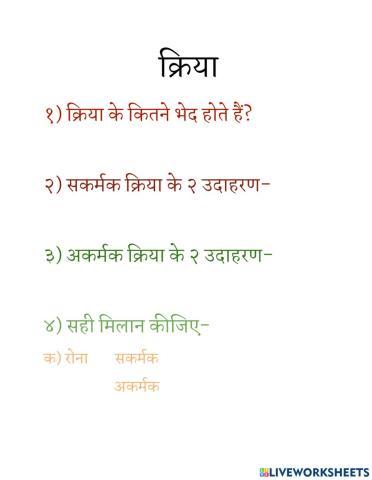 क्रिया
१) क्रिया के कितने भेद होते हैं?
२) सकर्मक क्रिया के २ उदाहरण-
३) अकर्मक क्रिया के २ उदाहरण-
४) सही मिलान कीजिए-
क) रोना सकर्मक
अकर्मक
LIVEWORKSHEETS